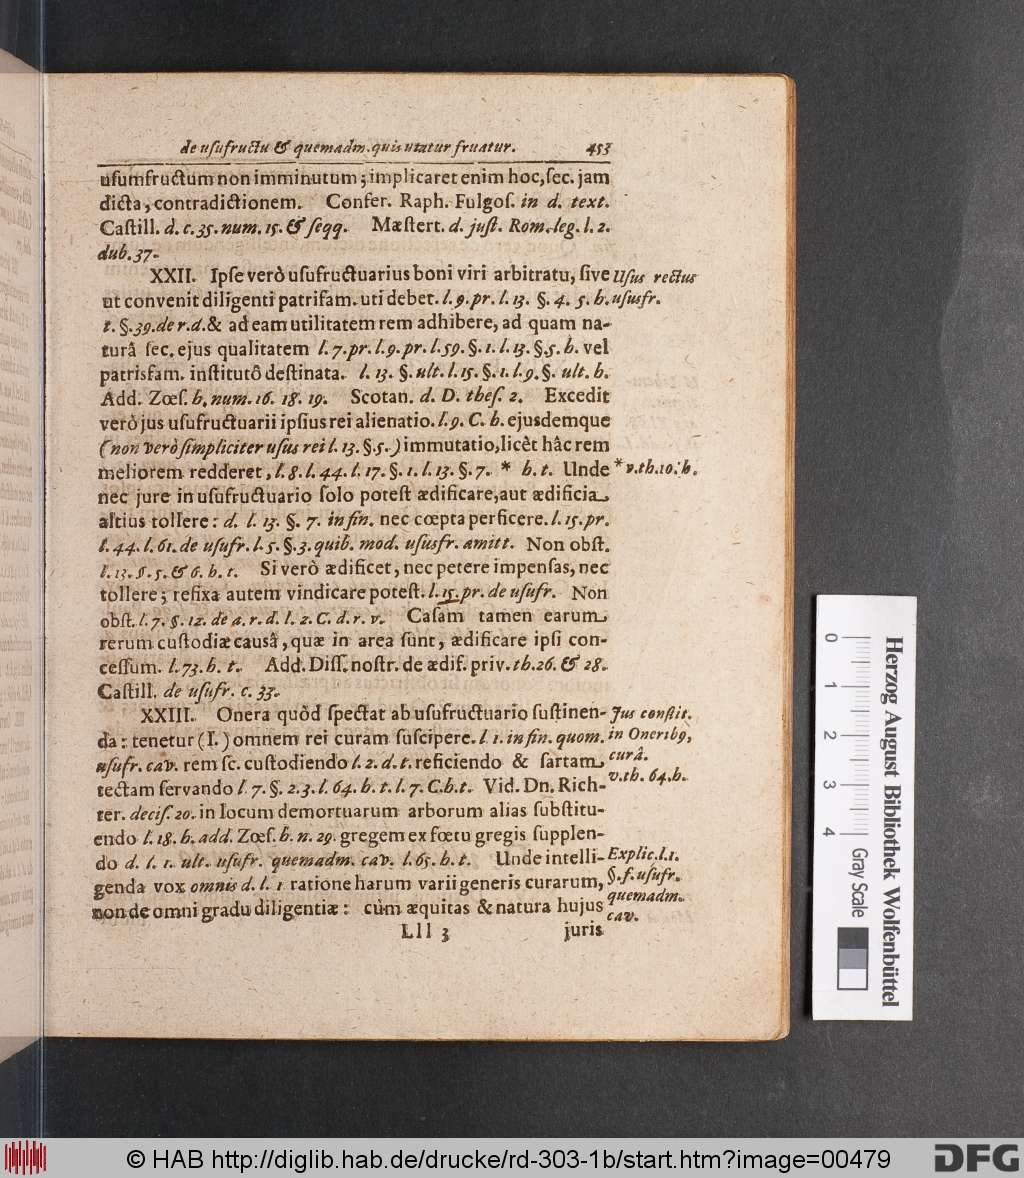 de usufructu & quemadm. quis utatur fruatur. 453
usumfructum non imminutum; implicaret enim hoc, sec. jam
dicta, contradictionem. Confer. Raph. Fulgos. in d. text.
Castill. d. c. 35. num. 15. & seqq. Mæstert. d. just. Rom. leg. l. 2.
dub. 37.
XXII. Ipse verò usufructuarius boni viri arbitratu, sive
Usus rectus
ut convenit diligenti patrifam. uti debet. l. 9. pr. l. 13. §. 4. 5. h.
ususfr.
t. §. 39. de r. d. & ad eam utilitatem rem adhibere, ad quam na-
turâ sec. ejus qualitatem l. 7. pr. l. 9. pr. l. 59. §. 1. l. 13. §. 5. h. vel
patrisfam. institutô destinata. l. 13. §. ult. l. 15. §. 1. l. 9. §. ult. h.
Add. Zœs. h. num. 16. 18. 19. Scotan. d. D. thes. 2. Excedit
verò jus usufructuarii ipsius rei alienatio. l. 9. C. h. ejusdemque
(non verò simpliciter usus rei l. 13. §. 5.) immutatio, licèt hâc rem
meliorem redderet, l. 8. l. 44. l. 17. §. 1. l. 13. §. 7. * h. t. Unde
* v. th. 10. h.
nec jure in usufructuario solo potest ædificare, aut ædificia
altius tollere: d. l. 13. §. 7. in fin. nec cœpta perficere. l. 15. pr.
l. 44. l. 61. de usufr. l. 5. §. 3. quib. mod. ususfr. amitt. Non obst.
l. 13. §. 5. & 6. h. t. Si verò ædificet, nec petere impensas, nec
tollere; refixa autem vindicare potest. l. 15. pr. de usufr. Non
obst. l. 7. §. 12. de a. r. d. l. 2. C. d. r. v. Casam tamen earum
rerum custodiæ causâ, quæ in area sunt, ædificare ipsi con-
cessum. l. 73. h. t. Add. Diss. nostr. de ædif. priv. th. 26. & 28.
Castill. de usufr. c. 33.
XXIII. Onera quòd spectat ab usufructuario sustinen-
Jus constit.
da: tenetur (I.) omnem rei curam suscipere. l 1. in fin. quom.
in Onerib9,
usufr. cav. rem sc. custodiendo l. 2. d. t. reficiendo & sartam
curâ.
tectam servando l. 7. §. 2. 3. l. 64. h. t. l. 7. C. h. t. Vid. Dn. Rich-
v. th. 64. h.
ter. decis. 20. in locum demortuarum arborum alias substitu-
endo l. 18. h. add. Zœs. h. n. 29. gregem ex fœtu gregis supplen-
do d. l. 1. ult. usufr. quemadm. cav. l. 65. h. t. Unde intelli-
Explic. l. 1.
genda vox omnis d. l. 1 ratione harum varii generis curarum,
§. f. usufr.
quemadm.
non de omni gradu diligentiæ: cùm æquitas & natura hujus
cav.
Lll 3 juris
0 1 2 3 4
Herzog August Bibliothek Wolfenbüttel
Gray Scale
© HAB http://diglib.hab.de/drucke/rd-303-1b/start.htm?image=00479
DFG